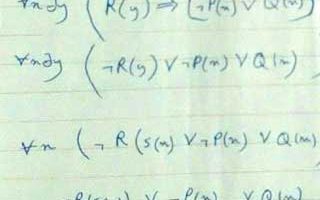 ∀x∃y (R(y) ⇒ [¬P(x) ∨ Q(x)]
∀x∃y (¬R(y) ∨ ¬P(x) ∨ Q(x))
∀x (¬R(s(x) ∨ ¬P(x) ∨ Q(x)
∨ ¬P(x) ∨ Q(x)